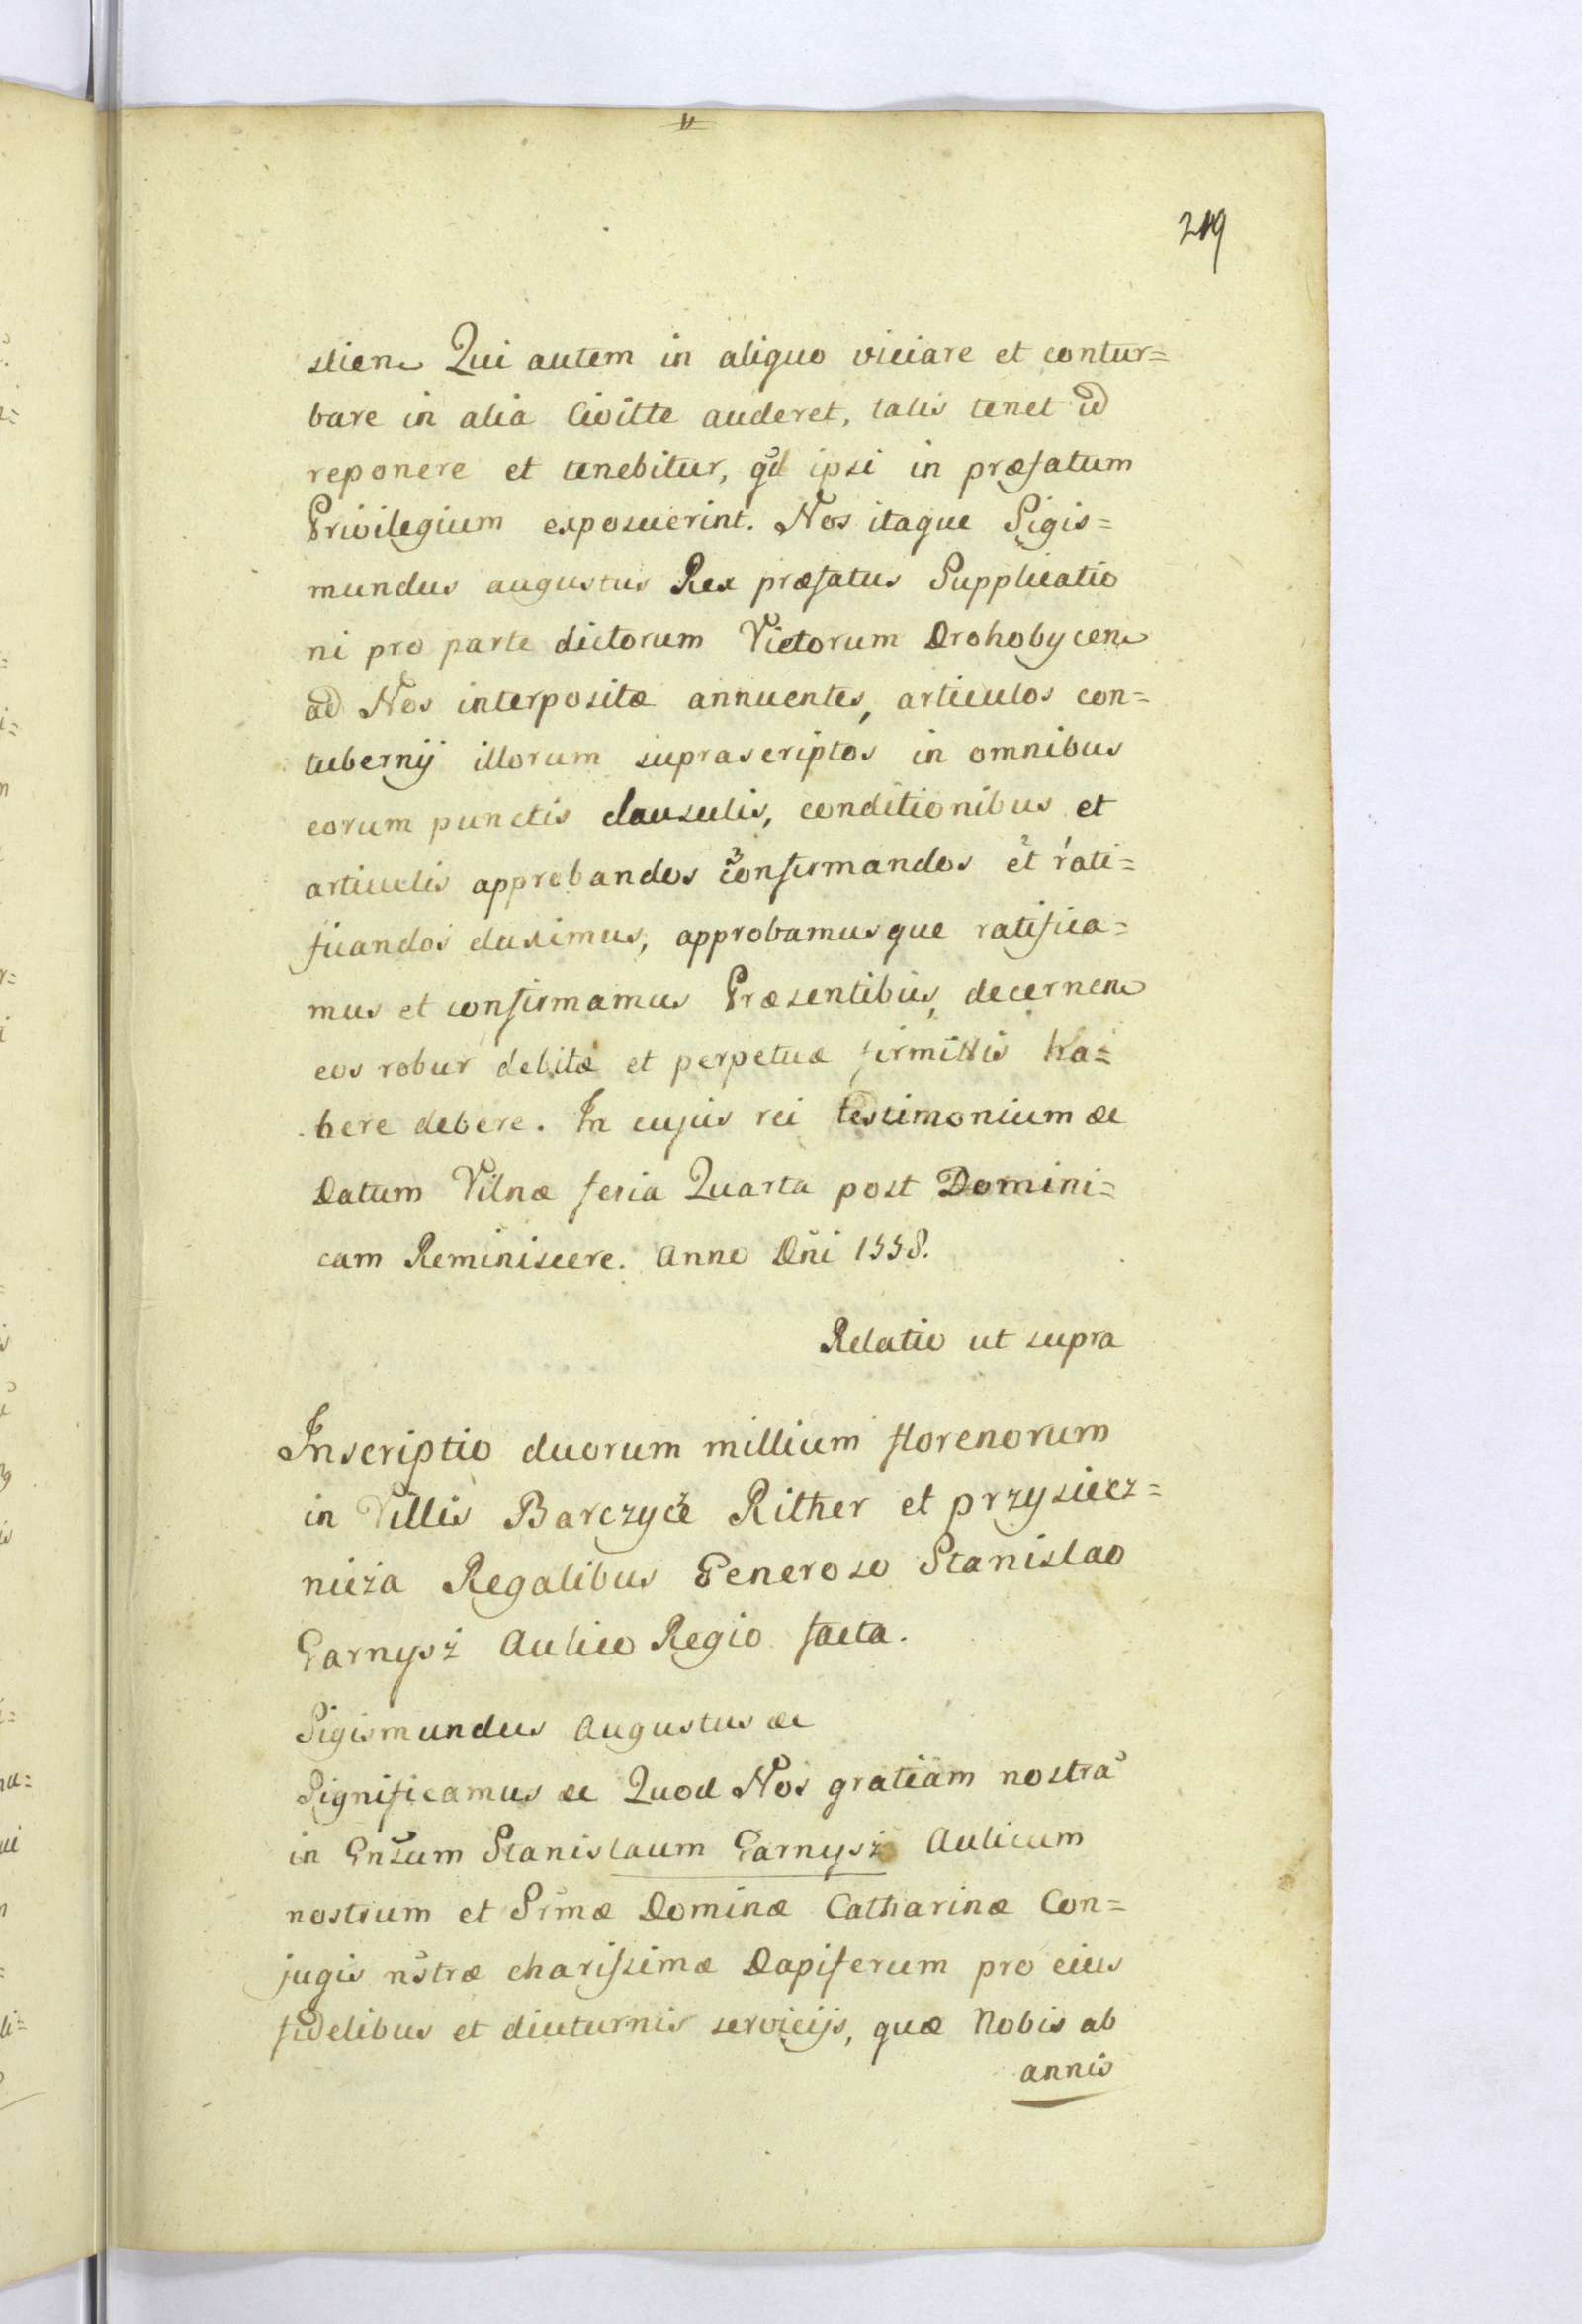 219
stien Qui autem in aliquo viciare et contur=
bare in alia Civitte auderet, talis tenet id
reponere et tenebitur, qd ipsi in præfatum
Privilegium exposuerint. Nos itaque Sigis=
mundus augustus Rex præfatus Supplicatio
ni pro parte dictorum Victorum Drohobycen
ad Nos interpositæ annuentes, articulos con=
tubernij illorum suprascriptos in omnibus
eorum punctis clausulis, conditionibus et
articulis approbandos confirmandos et rati=
ficandos duximus, approbamusque ratifica=
mus et confirmamus Præsentibus, decernen
eos robur debitæ et perpetuæ firmittis ha=
bere debere. In cujus rei testimonium &c
Datum Vilnæ feria Quarta post Domini=
cam Reminiscere. Anno Dñi 1558.
Relatio ut supra
Inscriptio duorum millium florenorum
in Villis Barczyce Rither et przysiecz=
nieza Regalibus Generoso Stanislao
Garnysz Aulico Regio facta.
Sigismundus Augustus &c
Significamus &c Quod Nos gratiam nostrã
in Gnsum Stanislaum Garnysz Aulicum
nostrum et Srmæ Dominæ Catharinæ Con=
jugis nstræ charissimæ Dapiferum pro eius
fidelibus et diuturnis servicijs, quæ Nobis ab
annis